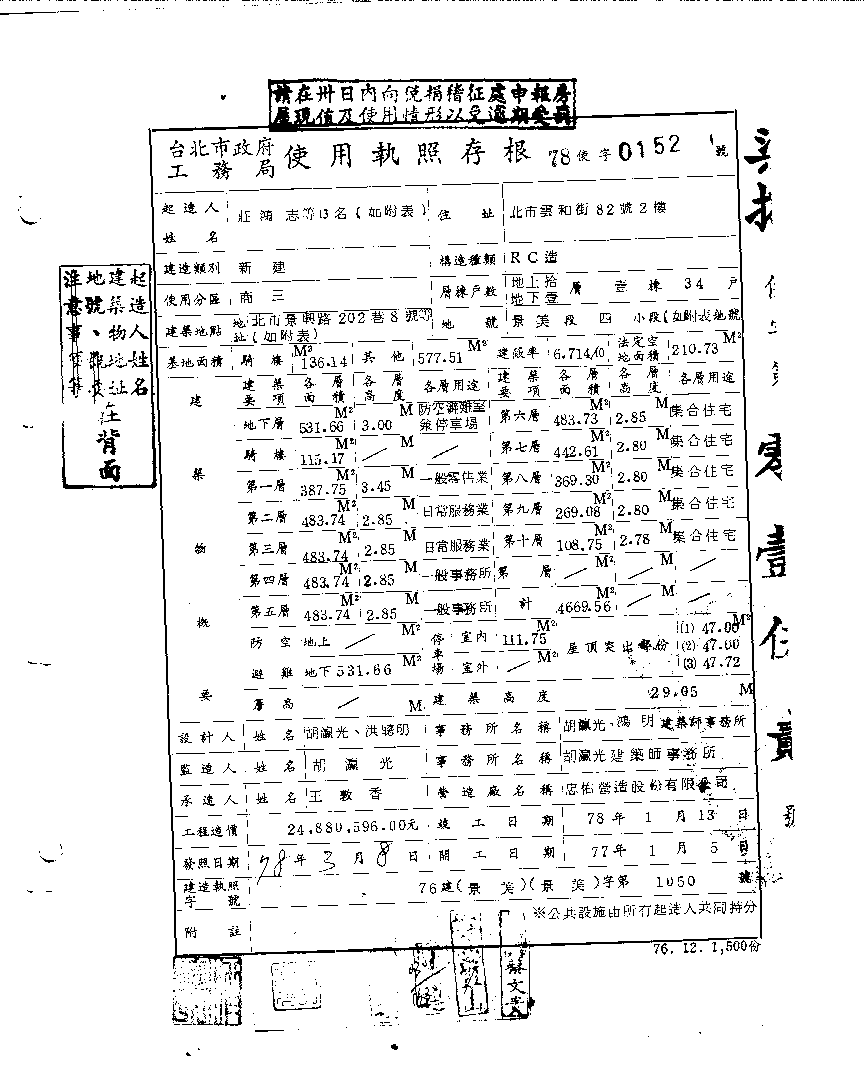 請在卅日內向稅捐稽征處申報房
屋現值及使用情形以受逾期受罰
台北市政府
工務局 使用執照存根 78使字0152號
起造人姓名 莊鴻志等13名(如附表) 住址 北市雲和街82號2樓
建造類別 新建 構造種類 RC造
使用分區 商三 層棟戶數 地上拾 地下壹 層 壹棟 34戶
建築地點 地址 北市景興路202巷8號等(如附表) 地號 景美段四小段(如附表地號
基地面積 騎樓 136.14 M² 其他 577.51 M² 建蔽率 6.714/10 法定空地面積 210.73 M²
建築物概要
建築要項 各層面積 各層高度 各層用途 建築要項 各層面積 各層高度 各層用途
地下層 531.66 M² 3.00 M 防空避難室兼停車場 第六層 483.73 M² 2.85 M 集合住宅
騎樓 115.17 M² 第七層 442.61 M² 2.80 M 集合住宅
第一層 387.75 M² 3.45 M 一般零售業 第八層 369.30 M² 2.80 M 集合住宅
第二層 483.74 M² 2.85 M 日常服務業 第九層 269.08 M² 2.80 M 集合住宅
第三層 483.74 M² 2.85 M 日常服務業 第十層 108.75 M² 2.78 M 集合住宅
第四層 483.74 M² 2.85 M 一般事務所 第 層 M² M
第五層 483.74 M² 2.85 M 一般事務所 計 4669.56 M² M
防空 地上 M² 停車場 室內 111.75 M² 屋頂突出部份 (1) 47.00 M²
避難 地下 531.66 M² 室外 M² (2) 47.00
(3) 47.72
層高 M 建築高度 29.05 M
設計人 姓名 胡瀛光、洪 明 事務所名稱 胡瀛光、鴻明建築師事務所
監造人 姓名 胡瀛光 事務所名稱 胡瀛光建築師事務所
承造人 姓名 王敦香 營造廠名稱 忠佑營造股份有限公司
工程造價 24,880,596.00元 竣工日期 78年1月13日
發照日期 78年3月8日 開工日期 77年1月5日
建造執照字號 76建(景美)(景美)字第1050號
附註 ※公共設施由所有起造人共同持分
76.12.1,500份
起造人姓名
建築物地址
地號、
注意事項等
在背面
零壹伍貳
號
蔡文